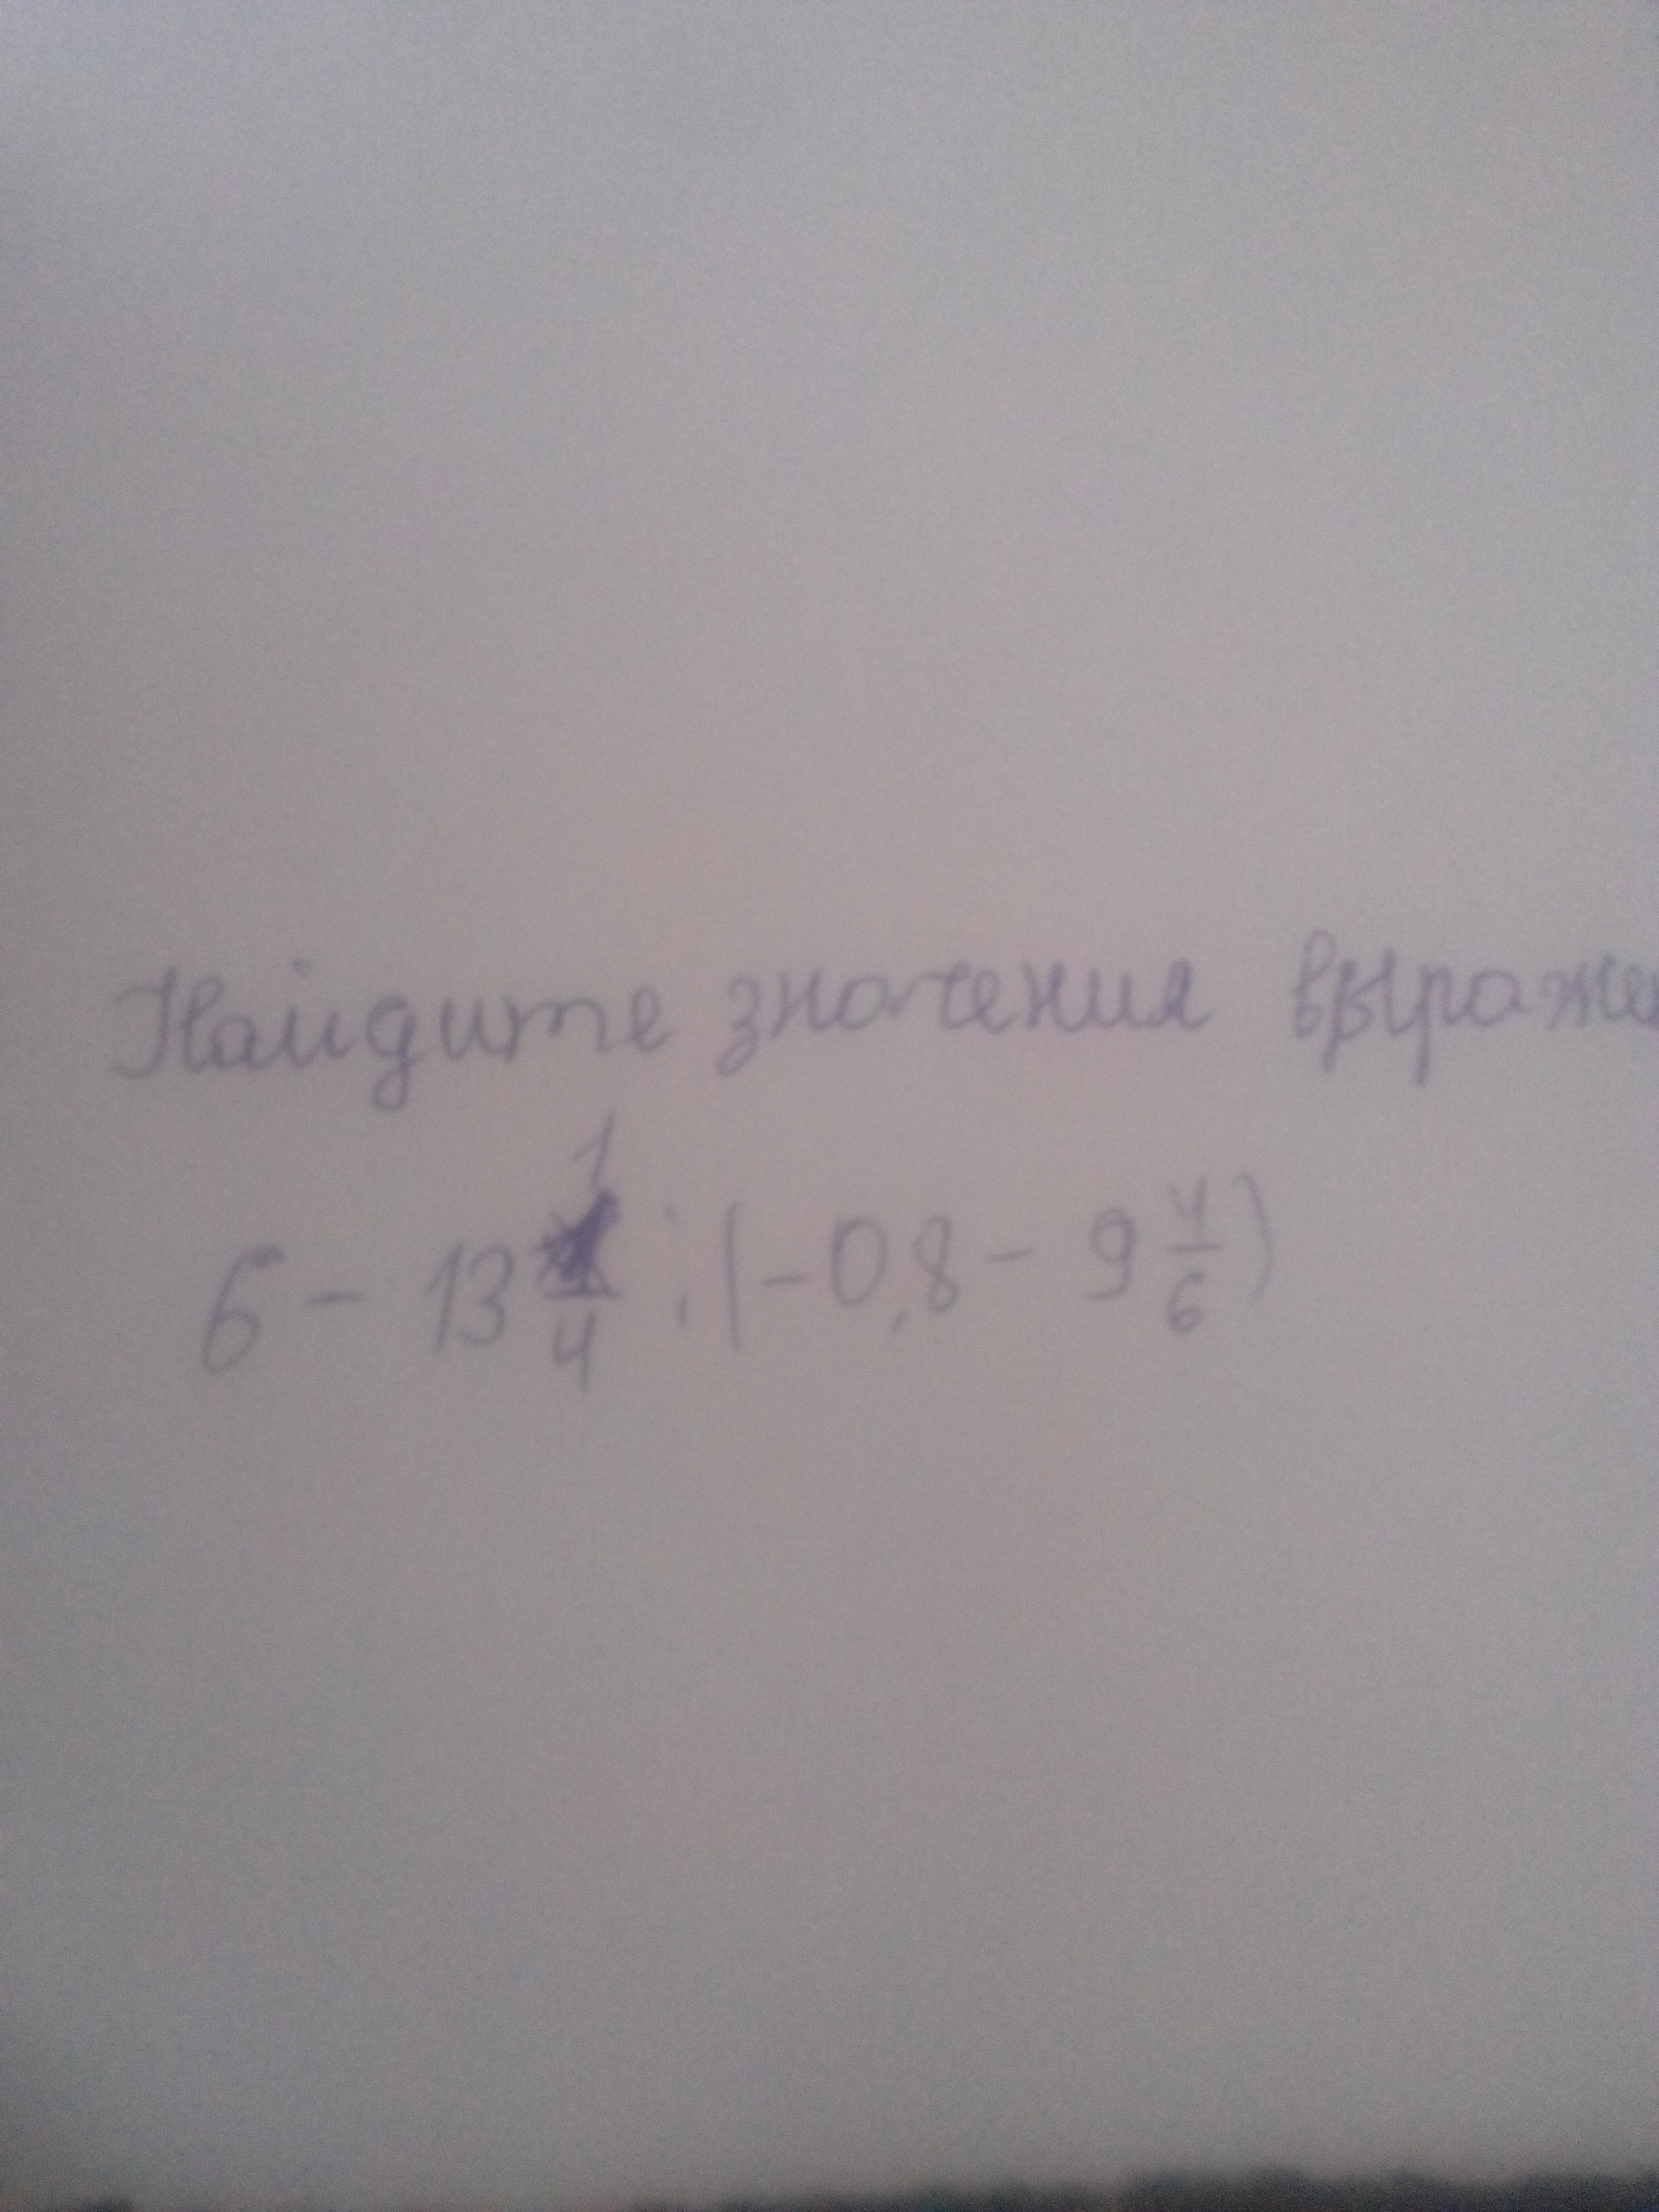 Найдите значения выраже
6 - 13 1/4 : (-0,8 - 9 4/6)